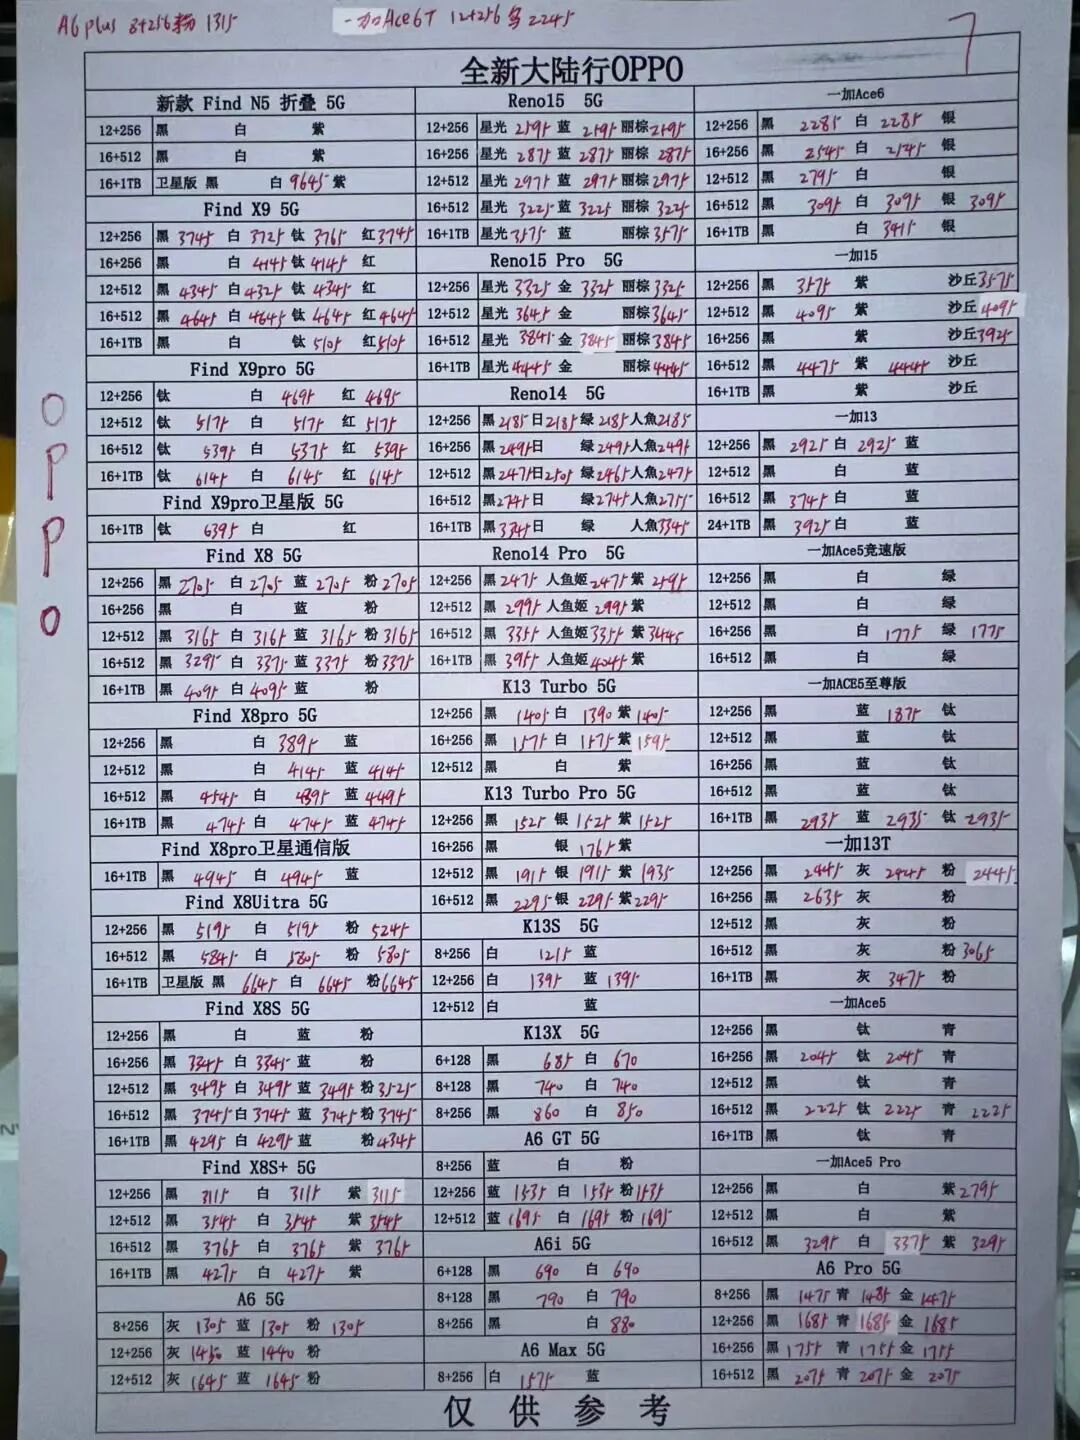 A6 plus 8+256粉 1315 一加Ace6T 12+256 2245
全新大陆行OPPO
OPPO
新款 Find N5 折叠 5G
12+256 黑 白 紫
16+512 黑 白 紫
16+1TB 卫星版 黑 白 9645 紫
Find X9 5G
12+256 黑 3745 白 3725 钛 3765 红 3745
16+256 黑 白 4145 钛 4145 红
12+512 黑 4345 白 4325 钛 4345 红
16+512 黑 4645 白 4645 钛 4645 红 4645
16+1TB 黑 白 钛 5105 红 5105
Find X9pro 5G
12+256 钛 白 4695 红 4695
12+512 钛 5175 白 5175 红 5175
16+512 钛 5395 白 5375 红 5395
16+1TB 钛 6145 白 6145 红 6145
Find X9pro卫星版 5G
16+1TB 钛 6395 白 红
Find X8 5G
12+256 黑 2705 白 2705 蓝 2705 粉 2705
16+256 黑 白 蓝 粉
12+512 黑 3165 白 3165 蓝 3165 粉 3165
16+512 黑 3295 白 3375 蓝 3375 粉 3375
16+1TB 黑 4095 白 4095 蓝 粉
Find X8pro 5G
12+256 黑 白 3895 蓝
12+512 黑 白 4145 蓝 4145
16+512 黑 4545 白 4395 蓝 4495
16+1TB 黑 4745 白 4745 蓝 4745
Find X8pro卫星通信版
16+1TB 黑 4945 白 4945 蓝
Find X8Uitra 5G
12+256 黑 5195 白 5195 粉 5245
16+512 黑 5845 白 5805 粉 5805
16+1TB 卫星版 黑 6645 白 6645 粉 6645
Find X8S 5G
12+256 黑 白 蓝 粉
16+256 黑 3345 白 3345 蓝 粉
12+512 黑 3495 白 3495 蓝 3495 粉 3525
16+512 黑 3745 白 3745 蓝 3745 粉 3745
16+1TB 黑 4295 白 4295 蓝 粉 4345
Find X8S+ 5G
12+256 黑 3115 白 3115 紫 3115
12+512 黑 3545 白 3545 紫 3545
16+512 黑 3765 白 3765 紫 3765
16+1TB 黑 4275 白 4275 紫
A6 5G
8+256 灰 1305 蓝 1305 粉 1305
12+256 灰 1450 蓝 1440 粉
12+512 灰 1645 蓝 1645 粉
Reno15 5G
12+256 星光 2595 蓝 2595 丽棕 2595
16+256 星光 2875 蓝 2875 丽棕 2875
12+512 星光 2975 蓝 2975 丽棕 2975
16+512 星光 3225 蓝 3225 丽棕 3225
16+1TB 星光 3575 蓝 丽棕 3575
Reno15 Pro 5G
12+256 星光 3325 金 3325 丽棕 3325
12+512 星光 3645 金 丽棕 3645
16+512 星光 3845 金 3845 丽棕 3845
16+1TB 星光 4445 金 丽棕 4445
Reno14 5G
12+256 黑 2185 日 2185 绿 2185 人魚 2185
16+256 黑 2495 日 绿 2495 人魚 2495
12+512 黑 2475 日 2505 绿 2465 人魚 2475
16+512 黑 2745 日 绿 2745 人魚 2755
16+1TB 黑 3345 日 绿 人魚 3345
Reno14 Pro 5G
12+256 黑 2475 人鱼姬 2475 紫 2595
12+512 黑 2995 人鱼姬 2995 紫
16+512 黑 3355 人鱼姬 3355 紫 3445
16+1TB 黑 3955 人鱼姬 4045 紫
K13 Turbo 5G
12+256 黑 1405 白 1390 紫 1405
16+256 黑 1575 白 1575 紫 1595
12+512 黑 白 紫
K13 Turbo Pro 5G
12+256 黑 1525 银 1525 紫 1525
16+256 黑 银 1765 紫
12+512 黑 1915 银 1915 紫 1935
16+512 黑 2295 银 2295 紫 2295
K13S 5G
8+256 白 1215 蓝
12+256 白 1395 蓝 1395
12+512 白 蓝
K13X 5G
6+128 黑 685 白 670
8+128 黑 740 白 740
8+256 黑 860 白 850
A6 GT 5G
8+256 蓝 白 粉
12+256 蓝 1535 白 1535 粉 1535
12+512 蓝 1695 白 1695 粉 1695
A6i 5G
6+128 黑 690 白 690
8+128 黑 790 白 790
8+256 黑 白 880
A6 Max 5G
8+256 白 1575 蓝
一加Ace6
12+256 黑 2285 白 2285 银
16+256 黑 2545 白 2545 银
12+512 黑 2795 白 银
16+512 黑 3095 白 3095 银 3095
16+1TB 黑 白 3415 银
一加15
12+256 黑 3575 紫 沙丘 3575
12+512 黑 4095 紫 沙丘 4095
16+256 黑 紫 沙丘 3925
16+512 黑 4475 紫 4445 沙丘
16+1TB 黑 紫 沙丘
一加13
12+256 黑 2925 白 2925 蓝
12+512 黑 白 蓝
16+512 黑 3745 白 蓝
24+1TB 黑 3925 白 蓝
一加Ace5竞速版
12+256 黑 白 绿
12+512 黑 白 绿
16+256 黑 白 1775 绿 1775
16+512 黑 白 绿
一加ACE5至尊版
12+256 黑 蓝 1875 钛
12+512 黑 蓝 钛
16+256 黑 蓝 钛
16+512 黑 蓝 钛
16+1TB 黑 2935 蓝 2935 钛 2935
一加13T
12+256 黑 2445 灰 2445 粉 2445
16+256 黑 2635 灰 粉
12+512 黑 灰 粉
16+512 黑 灰 粉 3065
16+1TB 黑 灰 3475 粉
一加Ace5
12+256 黑 钛 青
16+256 黑 2045 钛 2045 青
12+512 黑 钛 青
16+512 黑 2225 钛 2225 青 2225
16+1TB 黑 钛 青
一加Ace5 Pro
12+256 黑 白 紫 2795
12+512 黑 白 紫
16+512 黑 3295 白 3375 紫 3295
A6 Pro 5G
8+256 黑 1475 青 1485 金 1475
12+256 黑 1685 青 1685 金 1685
16+256 黑 1755 青 1755 金 1755
16+512 黑 2075 青 2075 金 2075
仅供参考